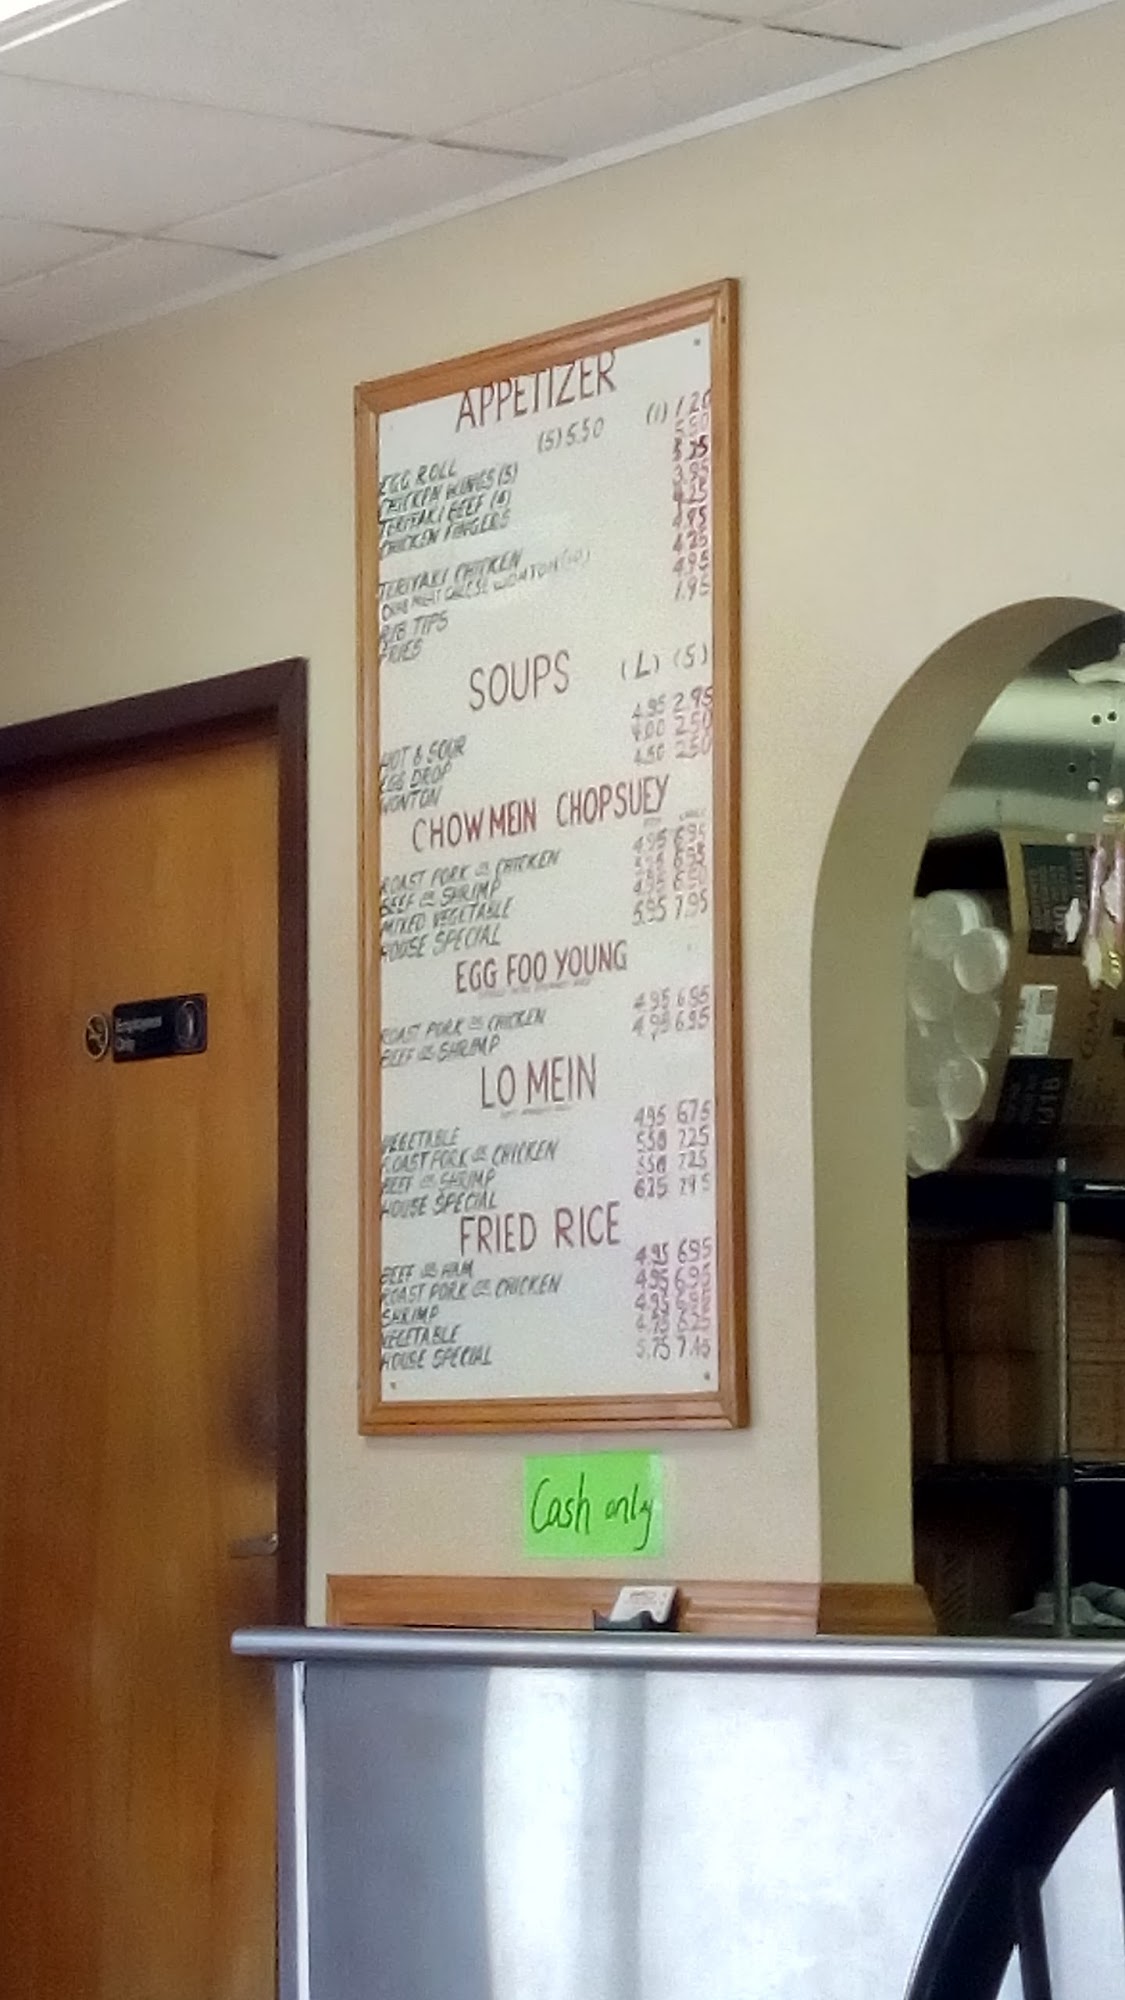 APPETIZER
EGG ROLL (5) 5.50 (1) 1.20
CHICKEN WINGS (5)
TERIYAKI BEEF (4)
CHICKEN FINGERS
TERIYAKI CHICKEN
CRAB MEAT CHEESE WONTON (10)
RIB TIPS 4.95
FRIES 1.95
SOUPS (L) (S)
HOT & SOUR 4.95 2.95
EGG DROP 4.00 2.50
WONTON 4.50 2.50
CHOW MEIN CHOPSUEY
ROAST PORK OR CHICKEN 4.95 6.95
BEEF OR SHRIMP
MIXED VEGETABLE
HOUSE SPECIAL 5.95 7.95
EGG FOO YOUNG
ROAST PORK OR CHICKEN 4.95 6.95
BEEF OR SHRIMP 4.95 6.95
LO MEIN
VEGETABLE 4.95 6.75
ROAST PORK OR CHICKEN 5.50 7.25
BEEF OR SHRIMP 5.50 7.25
HOUSE SPECIAL 6.25 7.95
FRIED RICE
BEEF OR HAM 4.95 6.95
ROAST PORK OR CHICKEN 4.95 6.95
SHRIMP
VEGETABLE
HOUSE SPECIAL 5.75
Employees
Only
Cash only